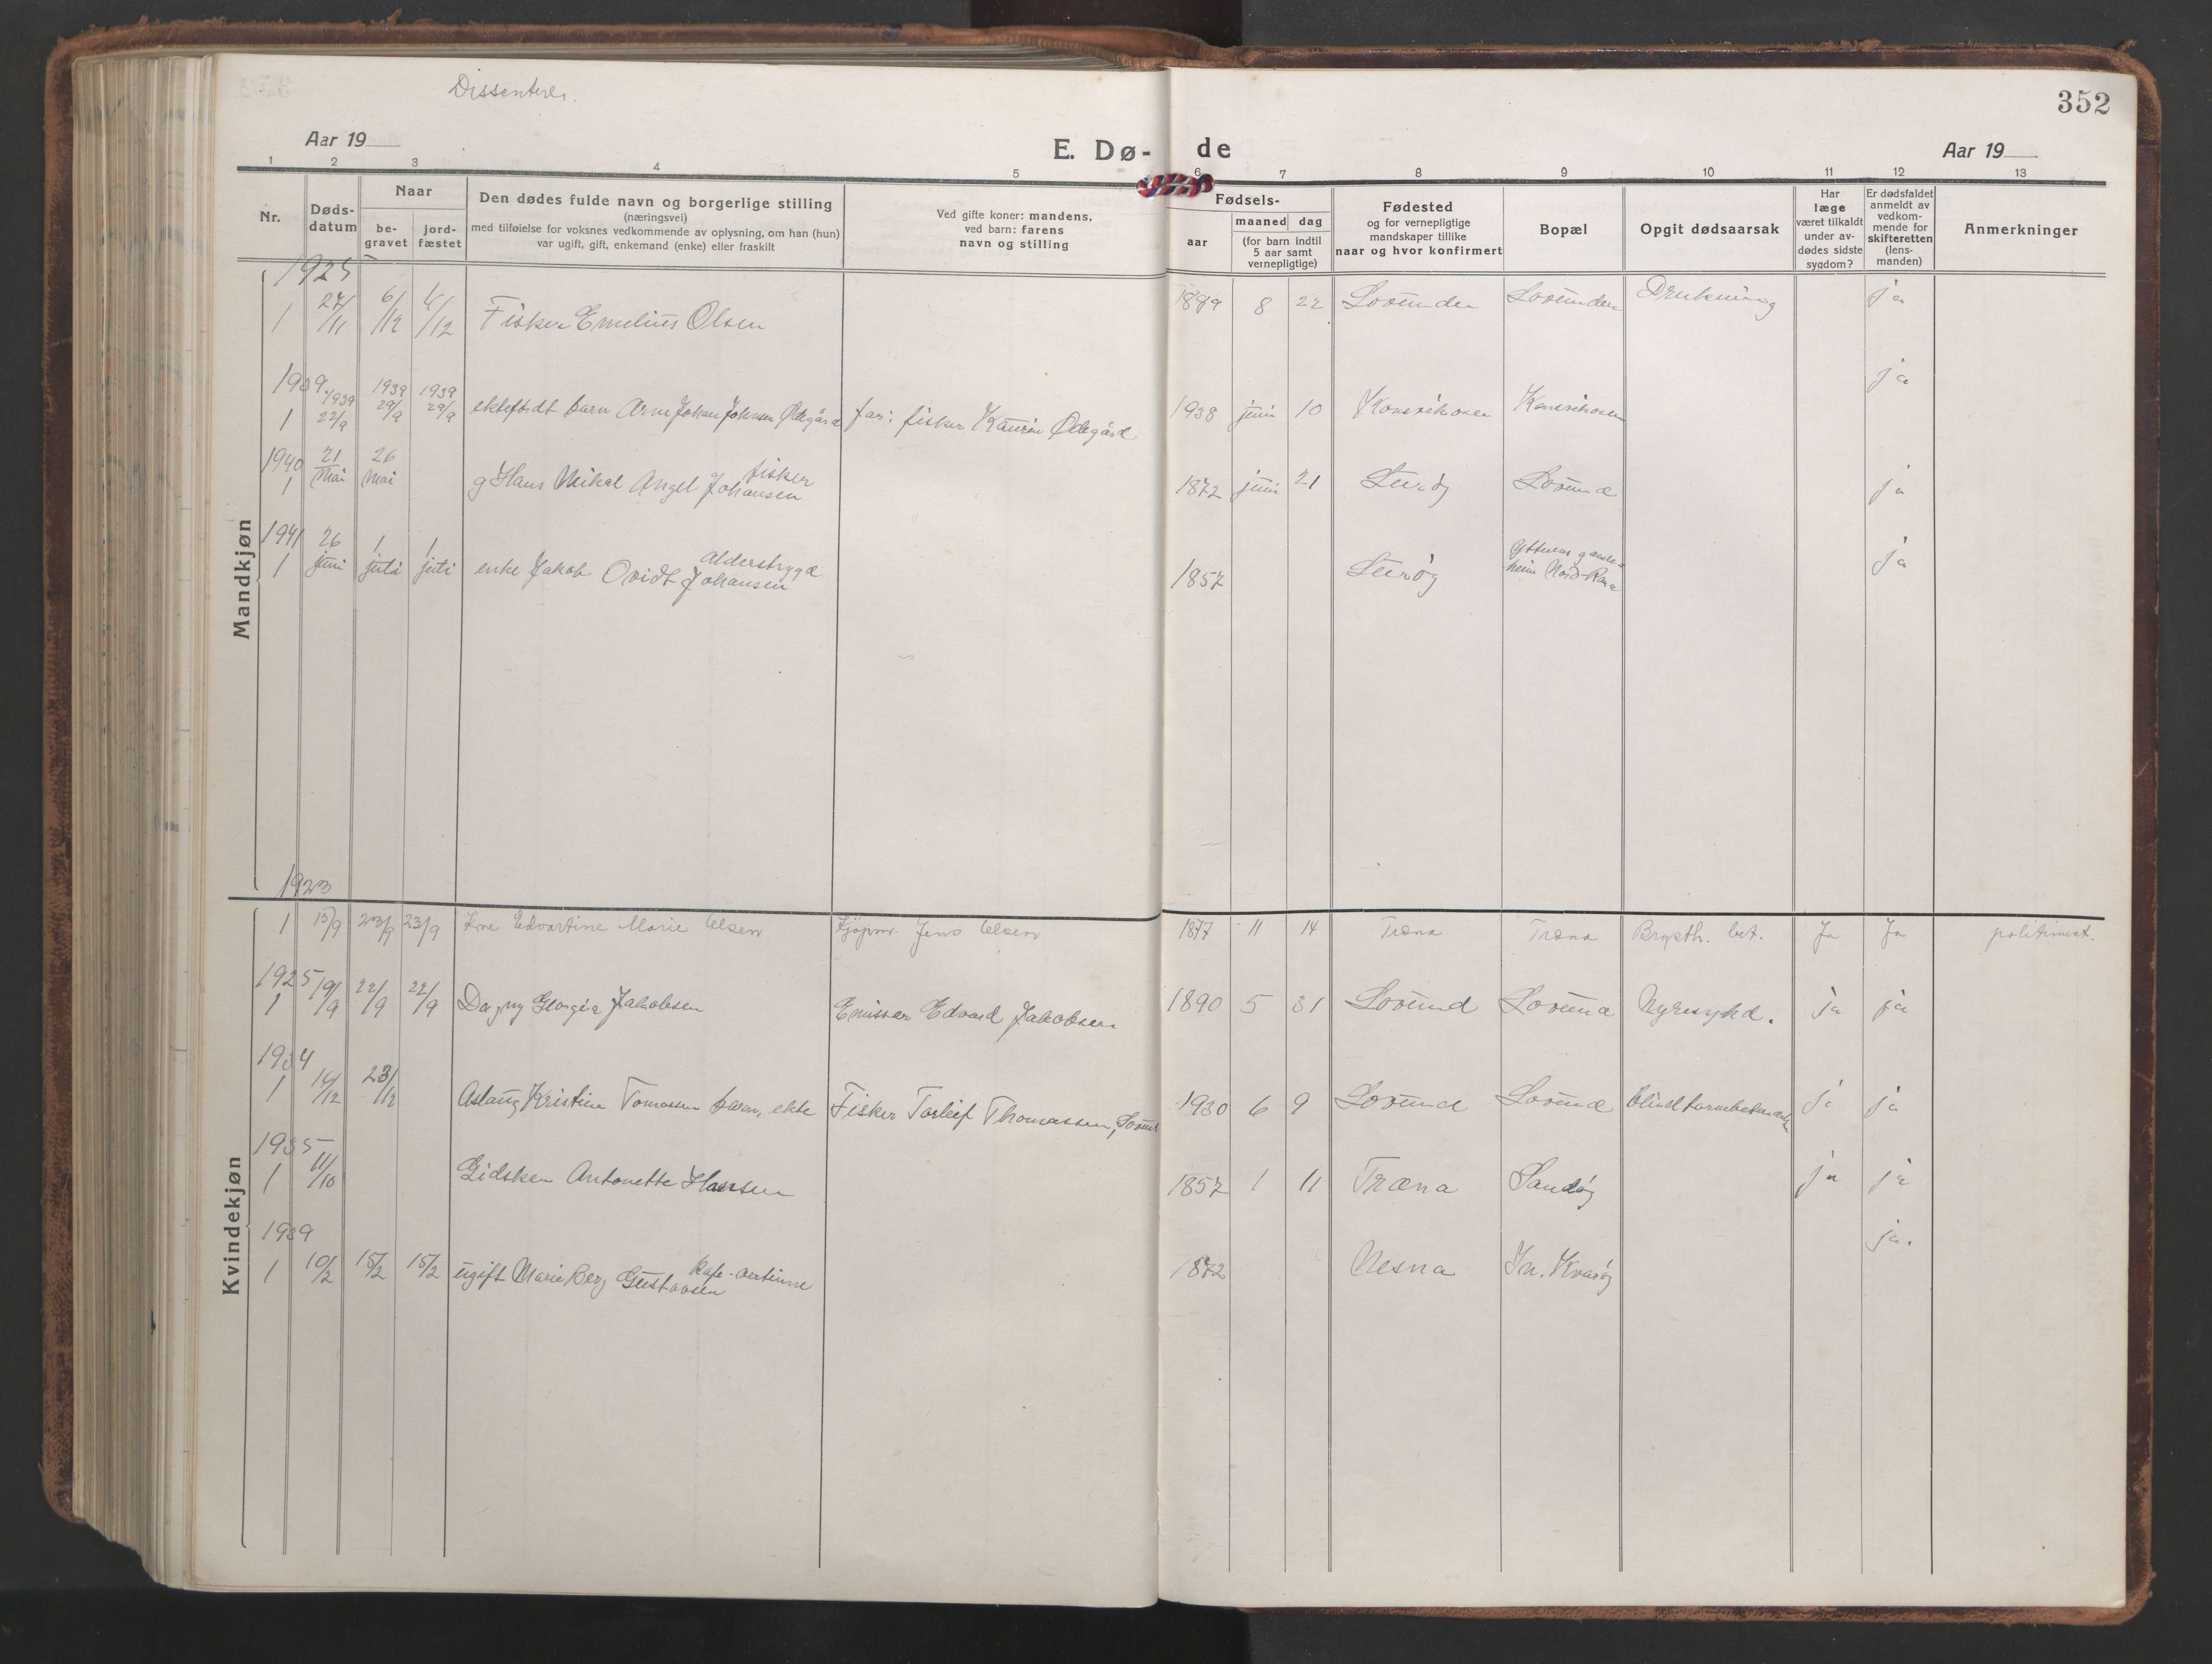 Dissentere.
352
Aar 19
E. Dø-
de
Aar 19
1 2 3 4 5 6 7 8 9 10 11 12 13
Nr.
Døds-
datum
Naar
be-
gravet
jord-
fæstet
Den dødes fulde navn og borgerlige stilling
(næringsvei)
med tilføielse for voksnes vedkommende av oplysning, om han (hun)
var ugift, gift, enkemand (enke) eller fraskilt
Ved gifte koner: mandens,
ved barn: farens
navn og stilling
Fødsels-
aar
maaned dag
(for barn indtil
5 aar samt
vernepligtige)
Fødested
og for vernepligtige
mandskaper tillike
naar og hvor konfirmert
Bopæl
Opgit dødsaarsak
Har
læge
været tilkaldt
under av-
dødes sidste
sygdom?
Er dødsfaldet
anmeldt av
vedkom-
mende for
skifteretten
(lens-
manden)
Anmerkninger
Mandkjøn
1925
1 27/11 6/12 6/12 Fisker Emelius Olsen 1899 8 22 Lovunden Lovunden Drukning ja
1939
1 1939 22/9 1939 29/9 1939 29/9 ektefødt barn Arne Johan Johnsen Ødegård far: fisker Kaurin Ødegård 1938 juni 10 Konsvikosen Konsvikosen ja
1940
1 21 Mai 26 Mai g Hans Mikal Angel Johansen fisker 1872 juni 21 Lurøy Lovund ja
1941
1 26 juni 1 juli 1 juli enke Jakob Ovidt Johansen Alderstrygd 1857 Lurøy Ytteren gamle-
heim Nord-Rana ja
Kvindekjøn
1923
1 15/9 23/9 23/9 Kone Edvartine Marie Olsen Kjøpm. Jens Olsen 1877 11 14 Træna Træna Brysth. bet. Ja Ja politimest.
1925
1 19/9 22/9 22/9 Dagny Georgia Jakobsen Emissær Edvard Jakobsen 1890 5 31 Lovund Lovund Nyresykd. ja ja
1934
1 16/12 23/12 Aslaug Kristine Tomassen barn, ekte Fisker Torleif Thomassen, Lovund 1930 6 9 Lovund Lovund blindtarmbetendelse ja ja
1935
1 11/10 Gidsken Antonette Hansen 1857 1 11 Træna Sandøy ja ja
1939
1 10/2 15/2 15/2 ugift Marie Berg Gustavsen kafe-vertinne 1872 Nesna In. Kvarøy ja.